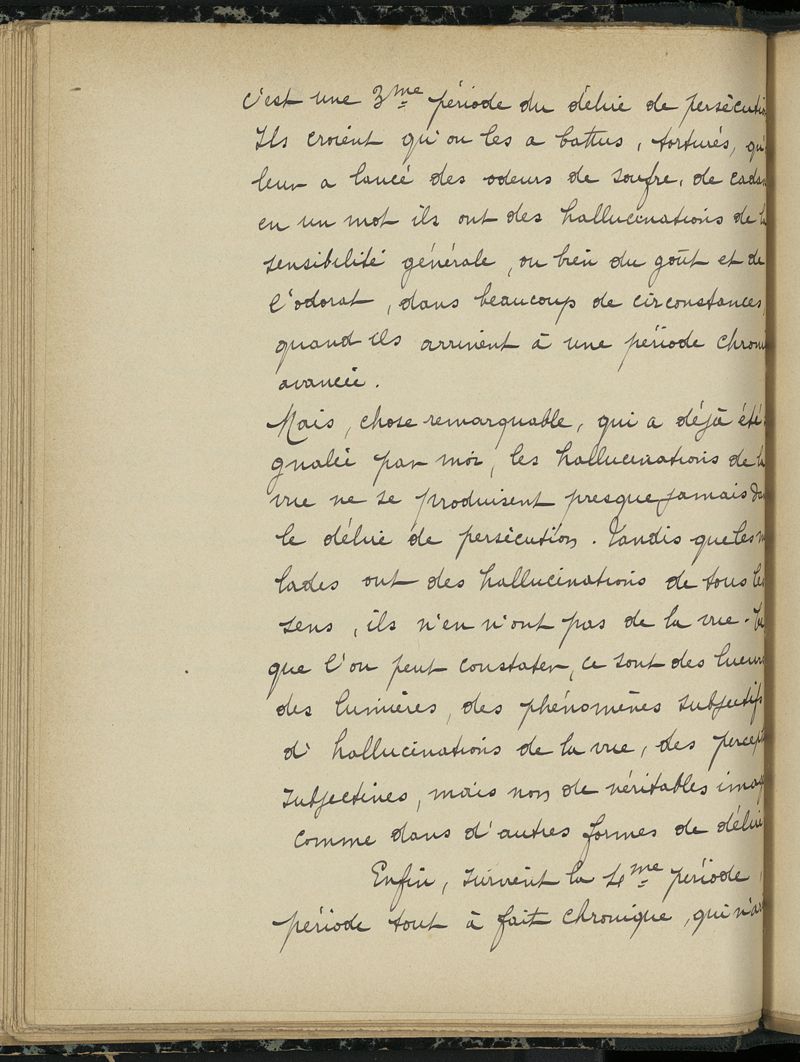 c'est une 3me période du délire de persécutio
Ils croient qu'on les a battus, torturés, qu'
leur a lancé des odeurs de soufre, de cada
en un mot ils ont des hallucinations de l
sensibilité générale, ou bien du goût et de
l'odorat, dans beaucoup de circonstances,
quand ils arrivent à une période chroni
avancée.
Mais, chose remarquable, qui a déjà été
gnalée par moi, les hallucinations de l
vue ne se produisent presque jamais da
le délire de persécution. Tandis que les m
lades ont des hallucinations de tous le
sens, ils n'en n'ont pas de la vue.
que l'on peut constater, ce sont des lueur
des lumières, des phénomènes subjectifs
d' hallucinations de la vue, des percept
subjectives, mais non de véritables imag
comme dans d'autres formes de délire
Enfin, survient la 4me période,
période tout à fait chronique, qui n'a